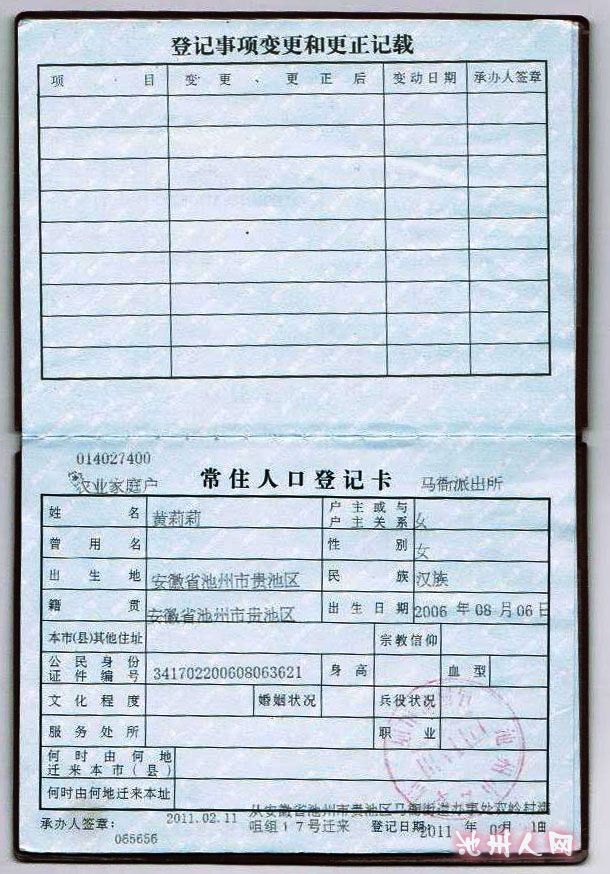 登记事项变更和更正记载
项 目 变 更 、 更 正 后 变动日期 承办人签章
014027400
农业家庭户 常住人口登记卡 马衙派出所
姓 名 黄莉莉 户主或与户主关系 女
曾 用 名 性 别 女
出 生 地 安徽省池州市贵池区 民 族 汉族
籍 贯 安徽省池州市贵池区 出生日期 2006 年 08 月 06 日
本市(县)其他住址 宗教信仰
公民身份证件编号 341702200608063621 身高 血型
文化程度 婚姻状况 兵役状况
服务处所 职 业
何时由何地迁来本市(县)
何时由何地迁来本址 2011.02.11 从安徽省池州市贵池区马衙街道办事处双岭村
咀组17号迁来
承办人签章: 065656 登记日期: 2011 年 02 月 日
池州人网